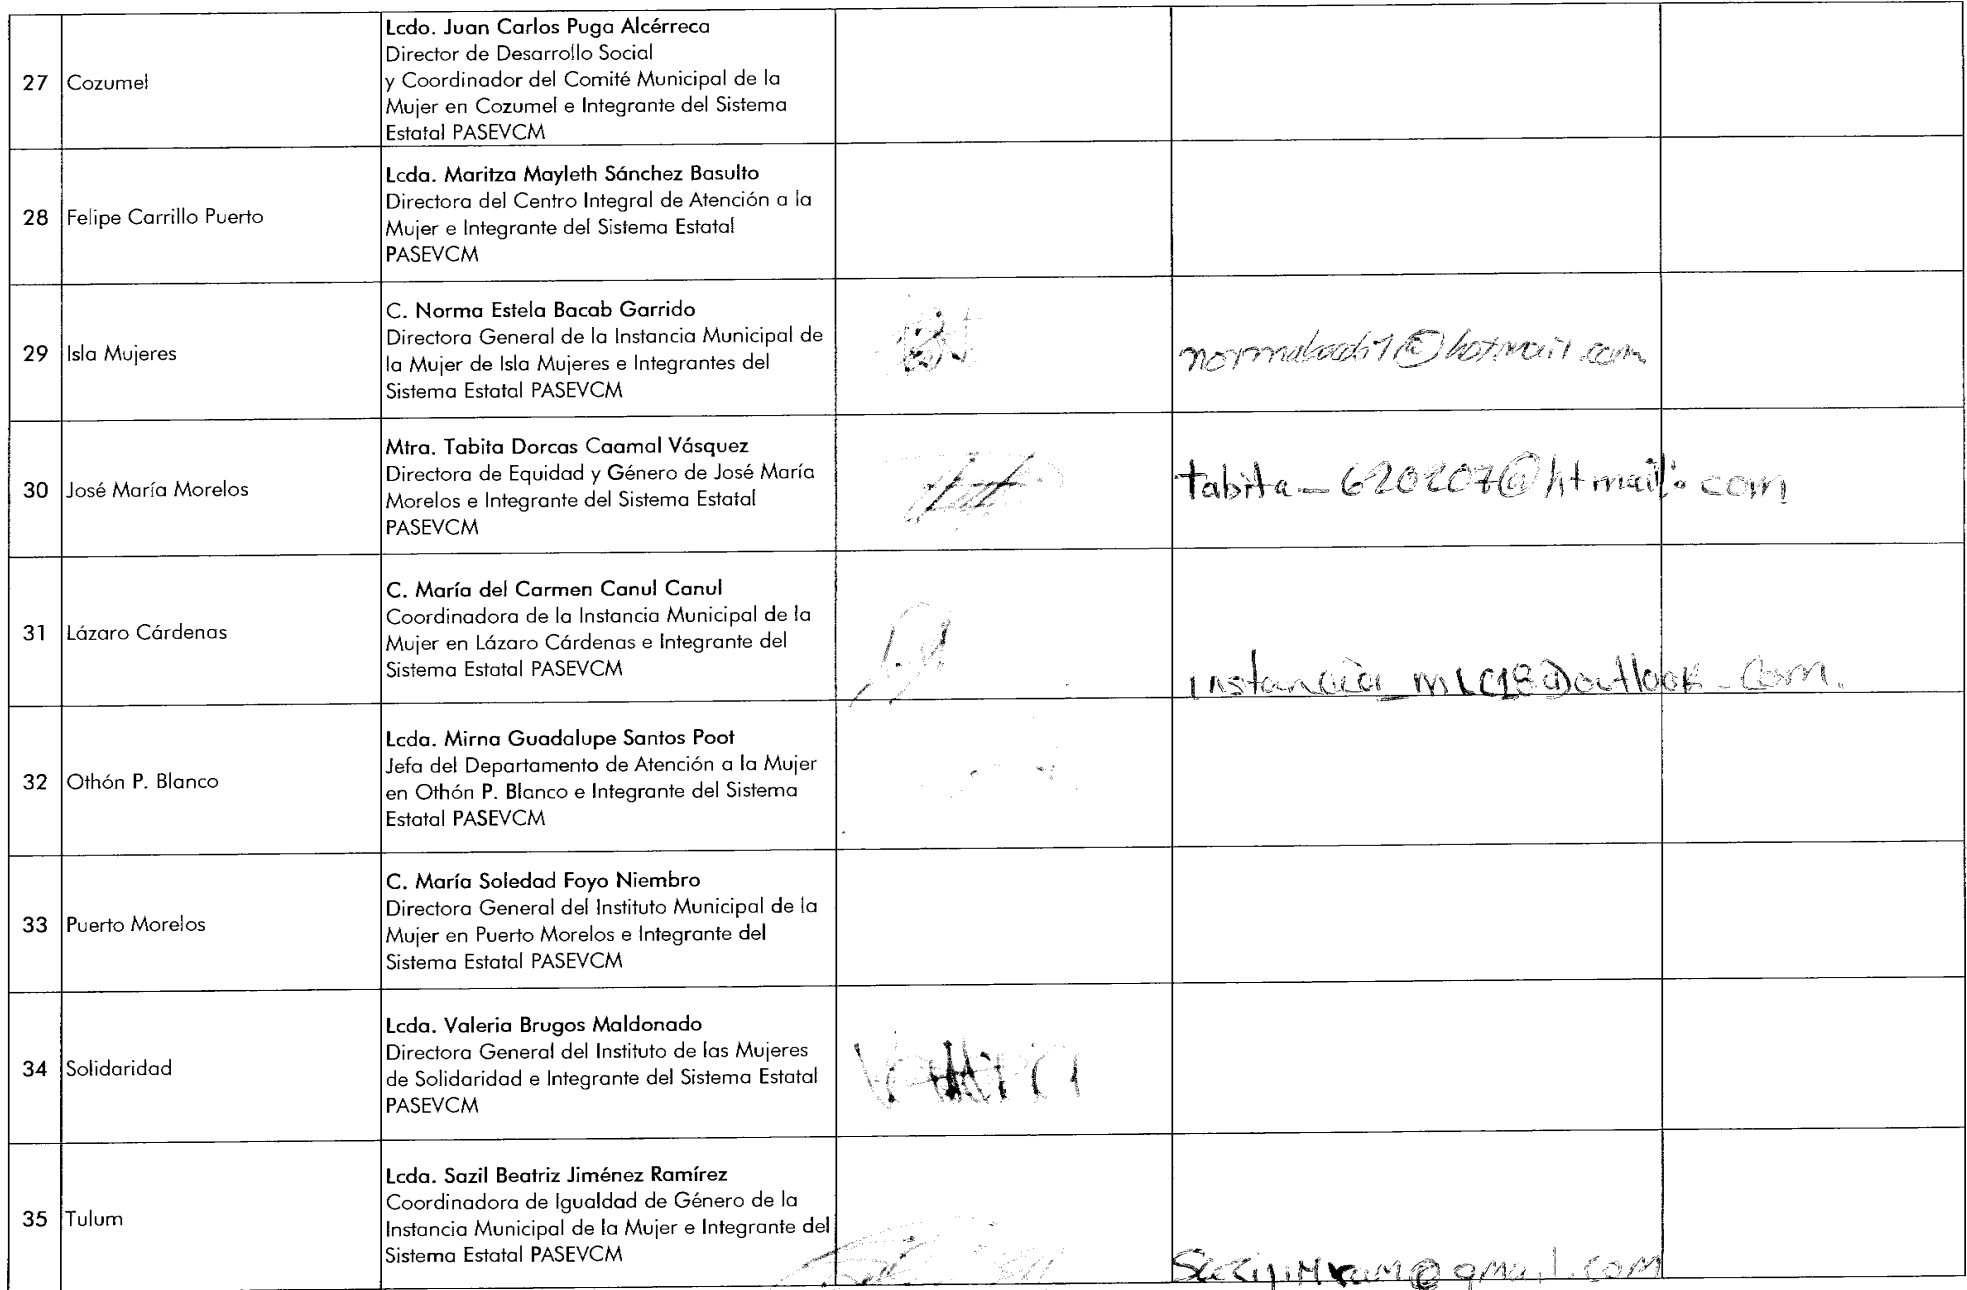 27 Cozumel
Lcdo. Juan Carlos Puga Alcérreca
Director de Desarrollo Social
y Coordinador del Comité Municipal de la
Mujer en Cozumel e Integrante del Sistema
Estatal PASEVCM
28 Felipe Carrillo Puerto
Lcda. Maritza Mayleth Sánchez Basulto
Directora del Centro Integral de Atención a la
Mujer e Integrante del Sistema Estatal
PASEVCM
29 Isla Mujeres
C. Norma Estela Bacab Garrido
Directora General de la Instancia Municipal de
la Mujer de Isla Mujeres e Integrantes del
Sistema Estatal PASEVCM
30 José María Morelos
Mtra. Tabita Dorcas Caamal Vásquez
Directora de Equidad y Género de José María
Morelos e Integrante del Sistema Estatal
PASEVCM
tabita_620207@htmail.com
31 Lázaro Cárdenas
C. María del Carmen Canul Canul
Coordinadora de la Instancia Municipal de la
Mujer en Lázaro Cárdenas e Integrante del
Sistema Estatal PASEVCM
instancia_mlc18@outlook.com.
32 Othón P. Blanco
Lcda. Mirna Guadalupe Santos Poot
Jefa del Departamento de Atención a la Mujer
en Othón P. Blanco e Integrante del Sistema
Estatal PASEVCM
33 Puerto Morelos
C. María Soledad Foyo Niembro
Directora General del Instituto Municipal de la
Mujer en Puerto Morelos e Integrante del
Sistema Estatal PASEVCM
34 Solidaridad
Lcda. Valeria Brugos Maldonado
Directora General del Instituto de las Mujeres
de Solidaridad e Integrante del Sistema Estatal
PASEVCM
35 Tulum
Lcda. Sazil Beatriz Jiménez Ramírez
Coordinadora de Igualdad de Género de la
Instancia Municipal de la Mujer e Integrante del
Sistema Estatal PASEVCM